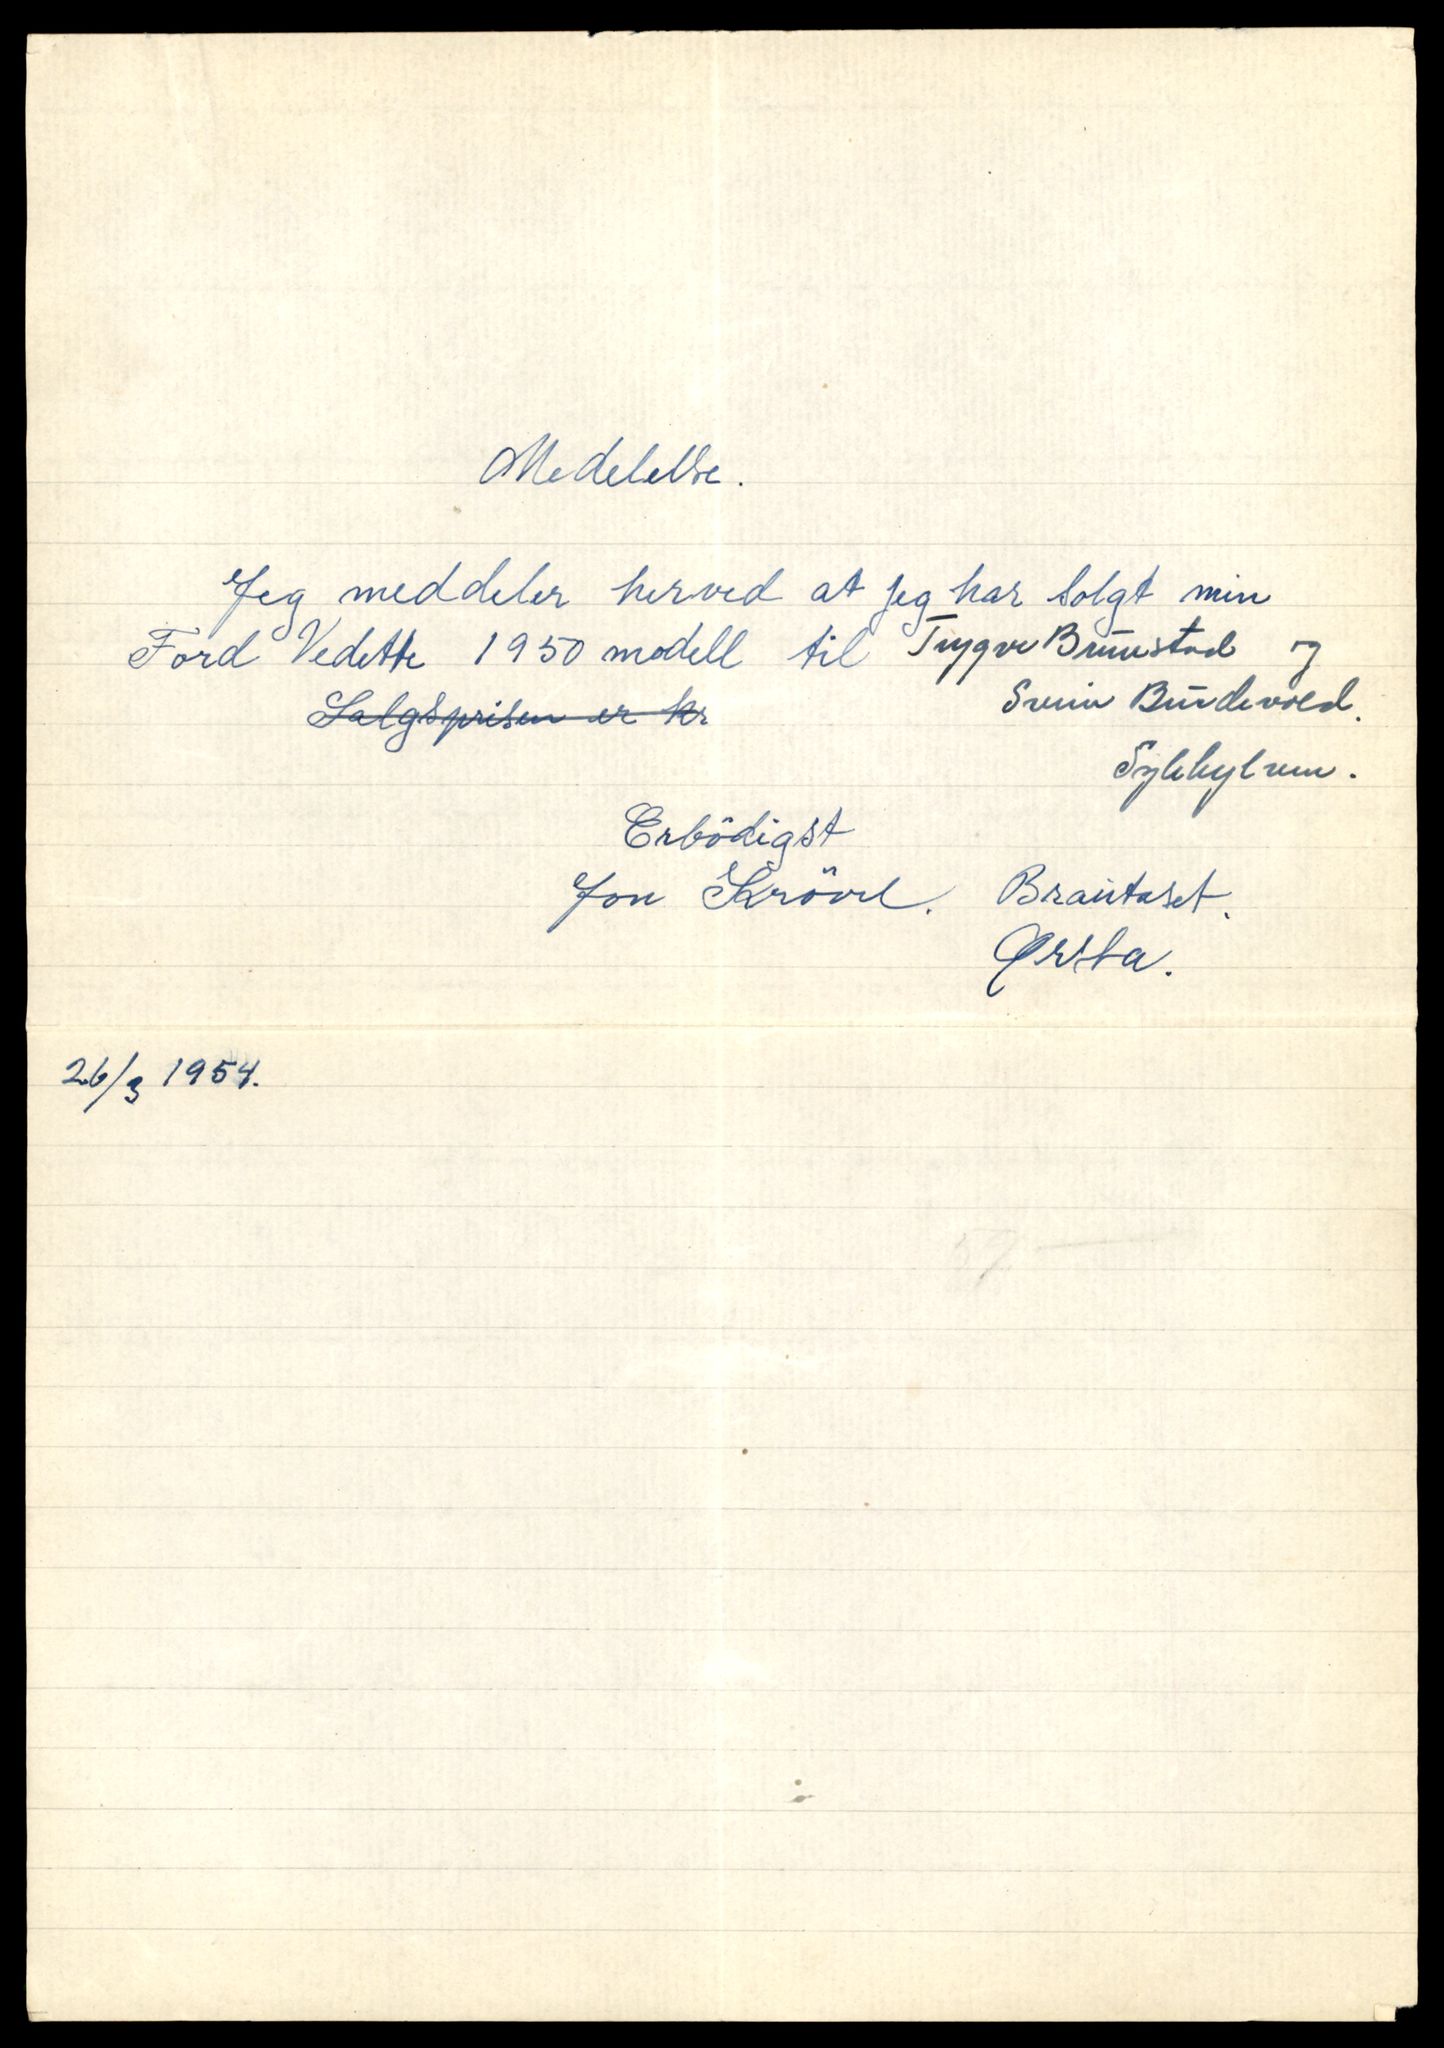 Medelelse.
Jeg meddeler herved at jeg har solgt min
Ford Vedette 1950 modell til Trygve Brunstad og
Salgsprisen er kr
Svein Burdevold.
Sykkylven.
Erbödigst
Jon Skrövel. Brautaset.
Ørsta.
26/3 1954.
57